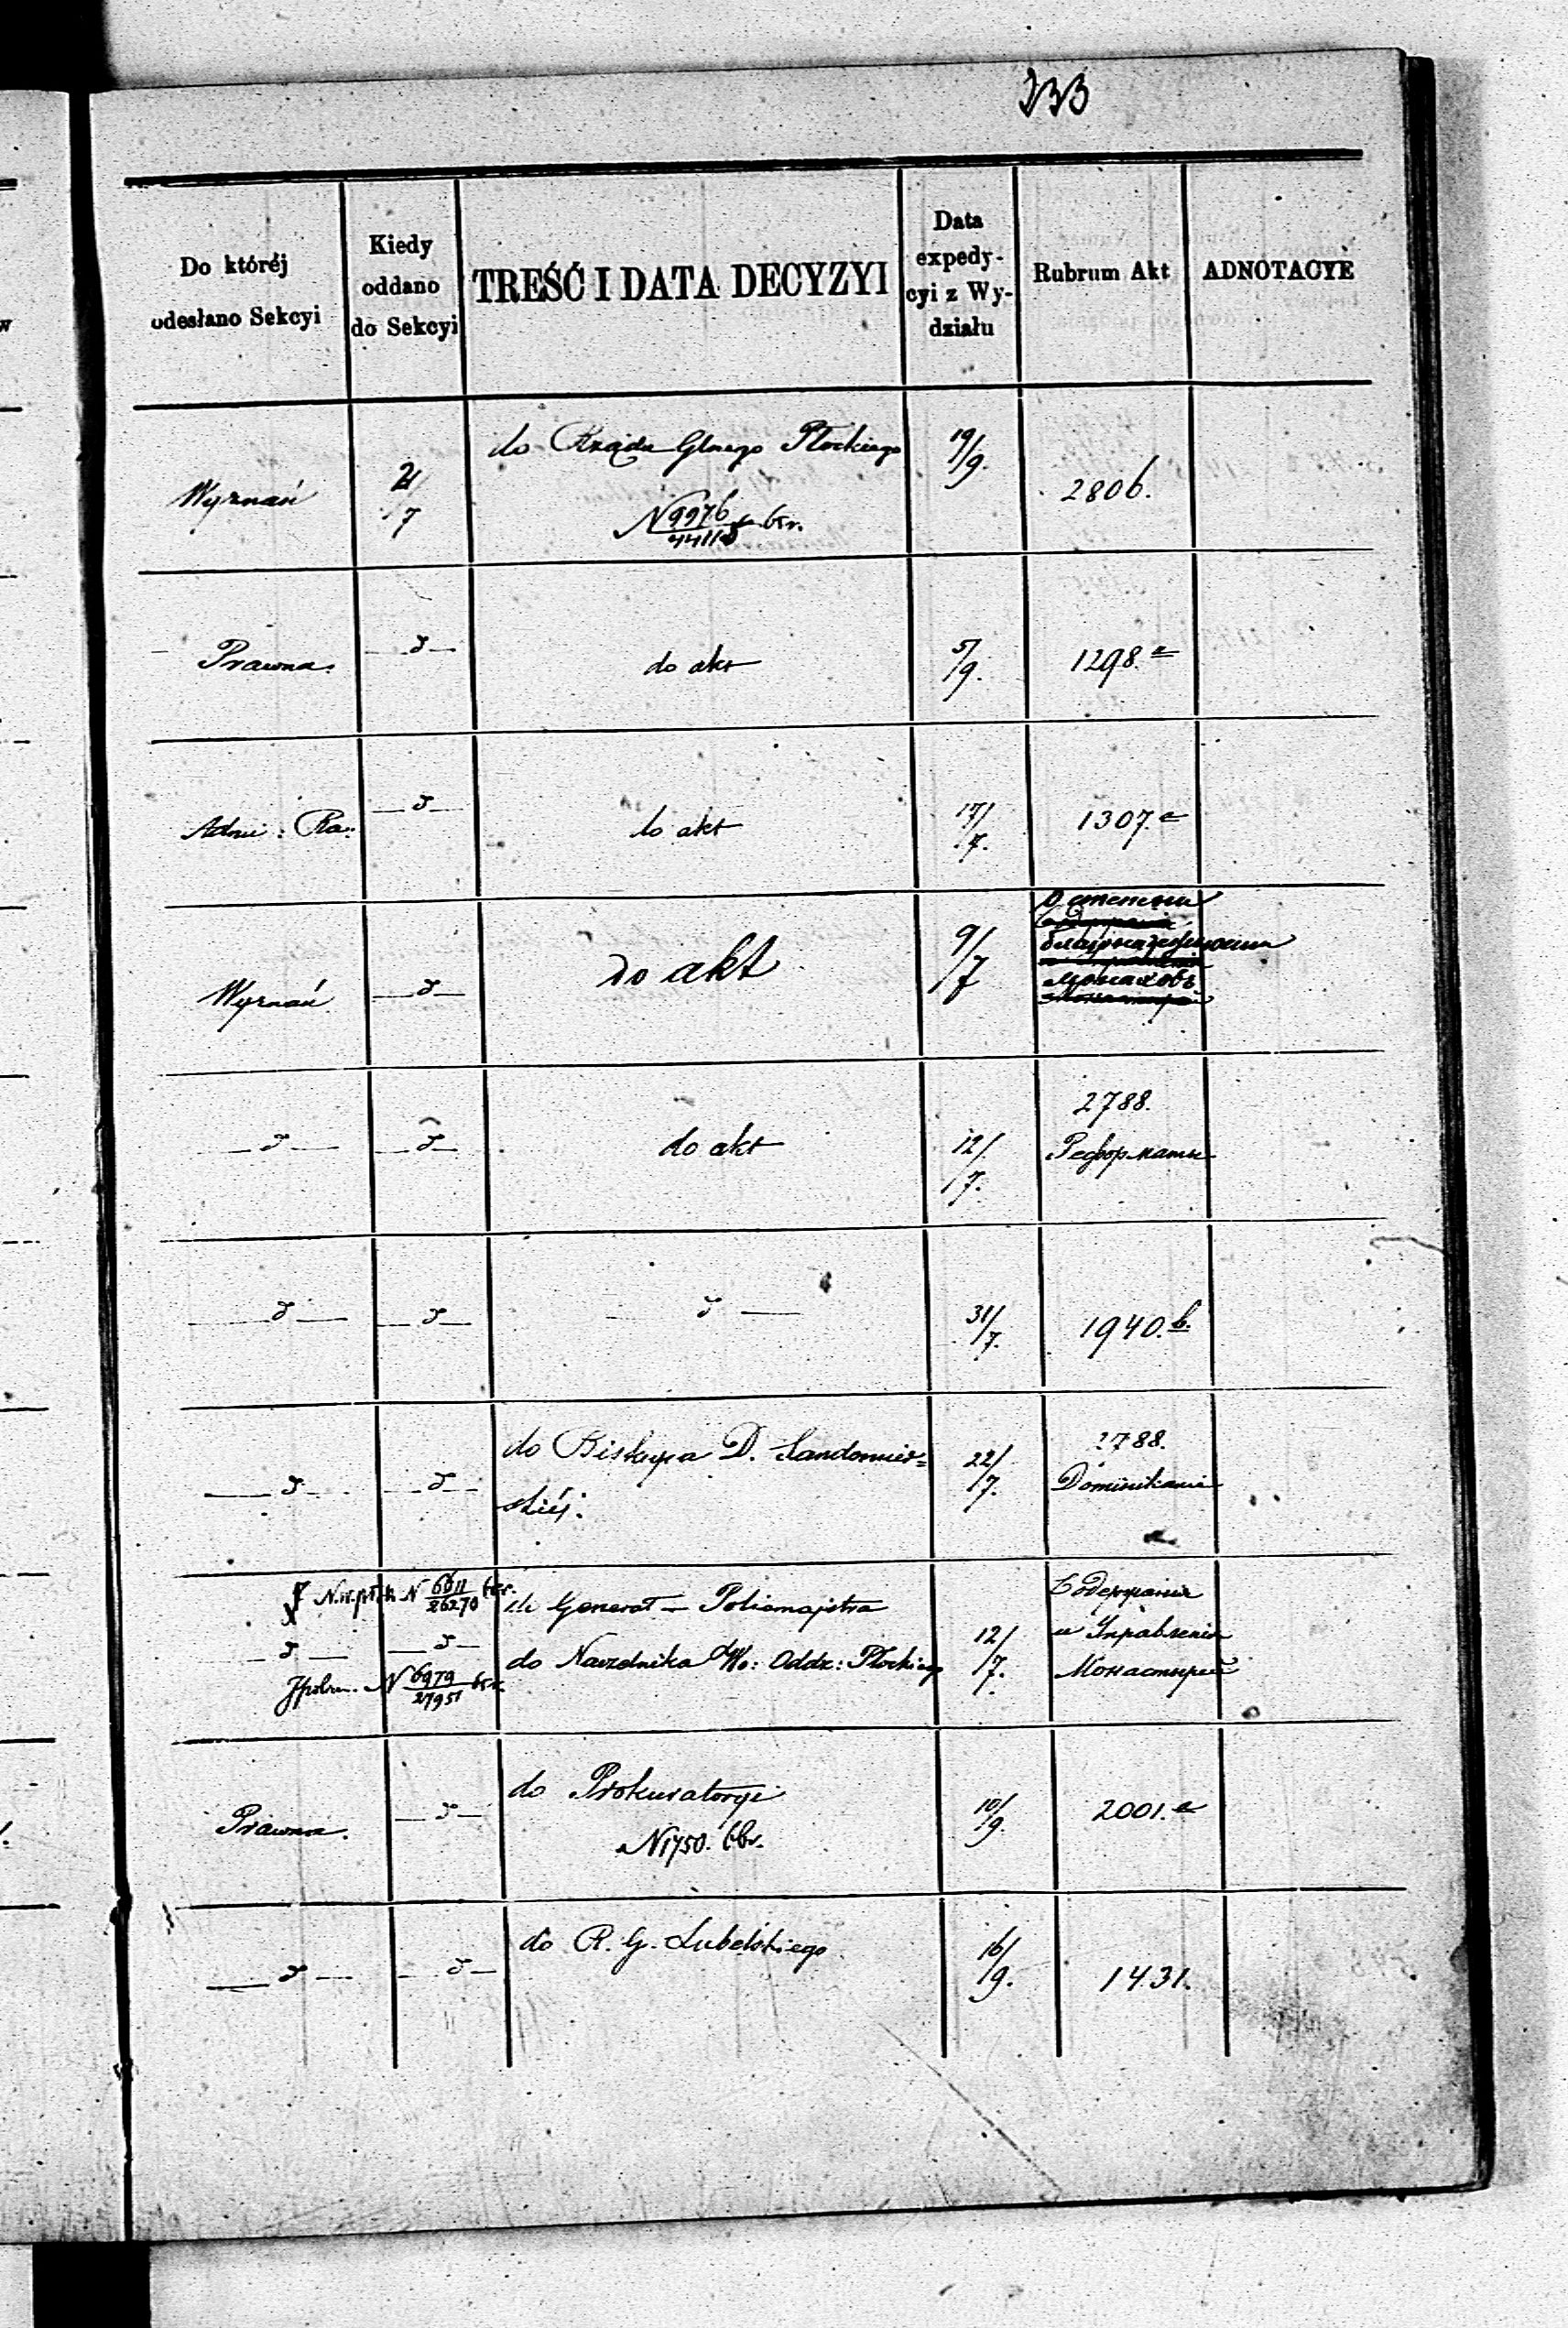 233
Do któréj
odesłano Sekcyi
Kiedy
oddano
do Sekcyi
TREŚĆ I DATA DECYZYI
Data
expedy-
cyi z Wy-
działu
Rubrum Akt
ADNOTACYE
Wyznań
2/7
do Rządu Glnego Płockiego
N 9976/44118 br.
19/9.
2806.
Prawna.
do akt
5/9.
1298.a
Admi:
do akt
17/7.
1307.a
Wyznań
do akt
9/7
О степени
монаховъ
do akt
12/7.
2788.
Реформаты
31/7.
1940.b.
do Biskupa D. Sandomier=
skiéj.
22/7.
2788.
Dominikanie
N 6611/26270 br.
do Generał - Policmajstra
N 6979/27951 br.
do Naczelnika Wo: Oddz: Płockiego
12/7.
Содержание
и Управление
Монастырей
Prawna.
do Prokuratoryi
N 1750. br.
10/9.
2001.a
do R. G. Lubelskiego
16/9.
1431.